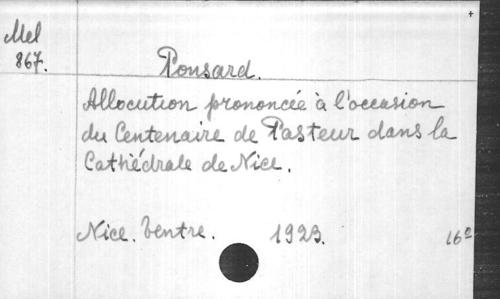 Mel
867.
Ponsard.
Allocution prononcée à l'occasion
du Centenaire de Pasteur dans la
Cathédrale de Nice.
Nice. Ventre. 1923. 16º